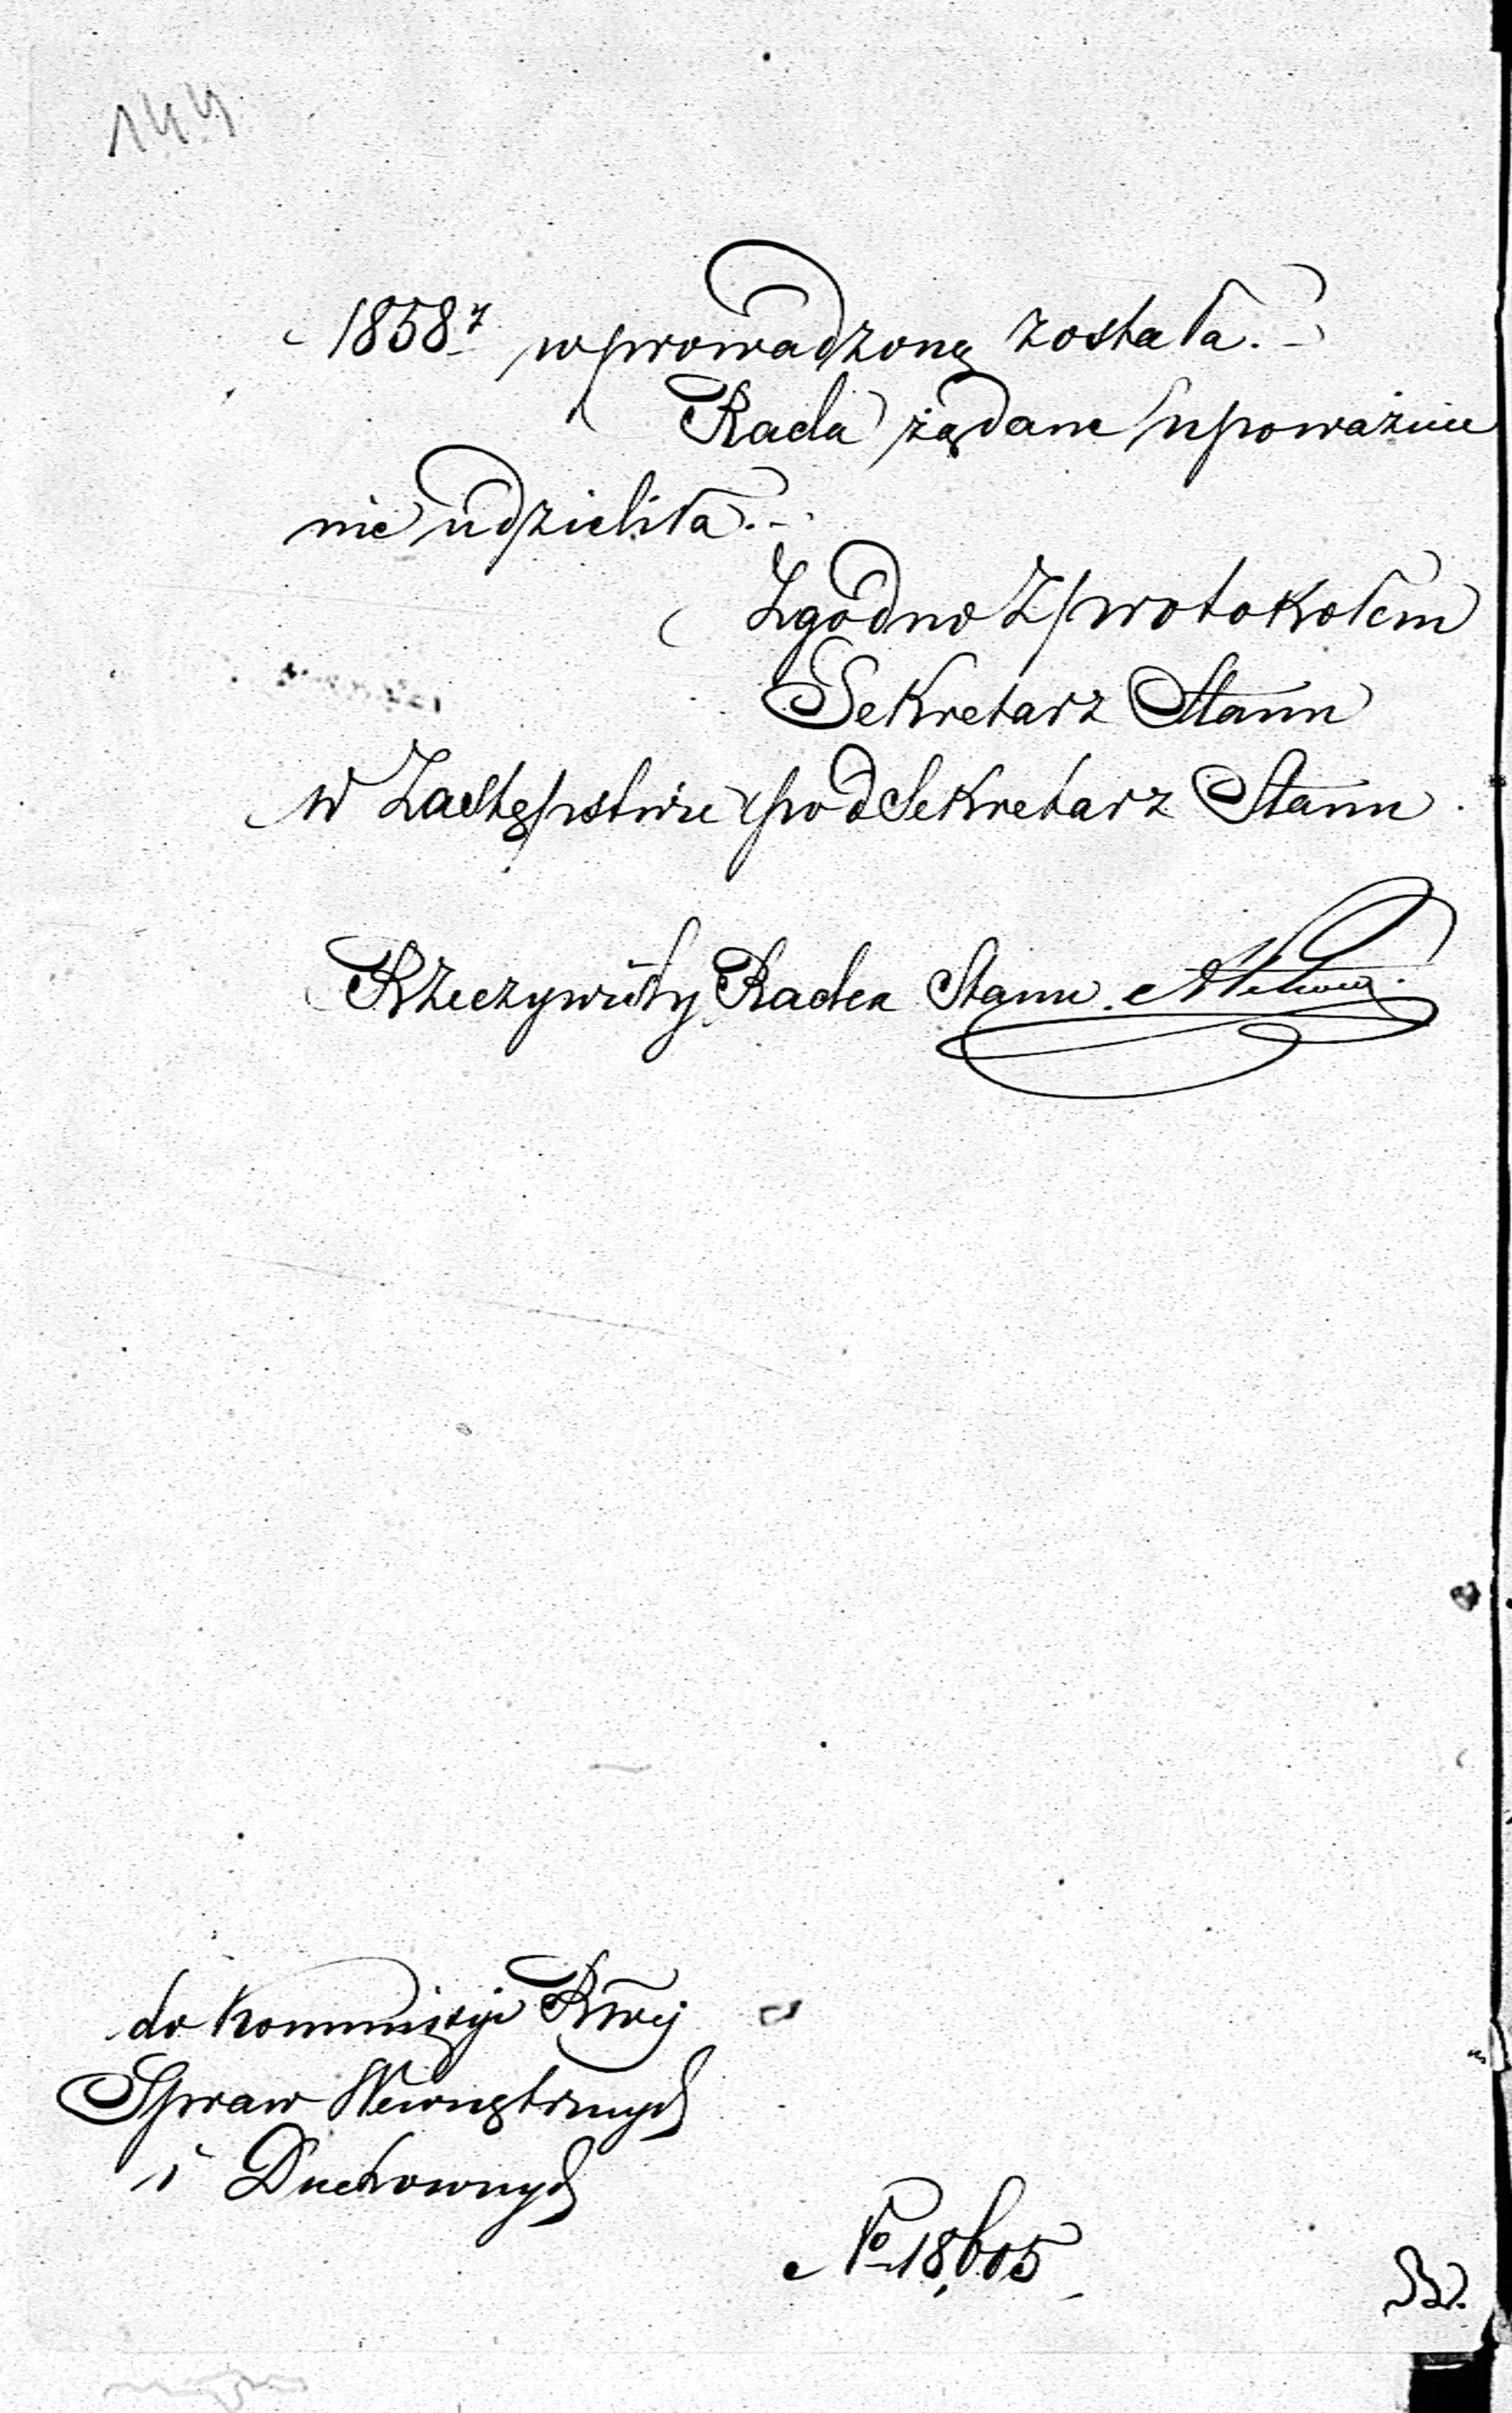 144
1858 r wprowadzoną została. -
Rada żądane upoważnie
nie udzieliła. -
Zgodno z protokołem
Sekretarz Stanu
w Zastępstwie podSekretarz Stanu
Rzeczywisty Radca Stanu.
do Kommissyi Rwéj
Spraw Wewnętrznych
i Duchownych
No 18,605